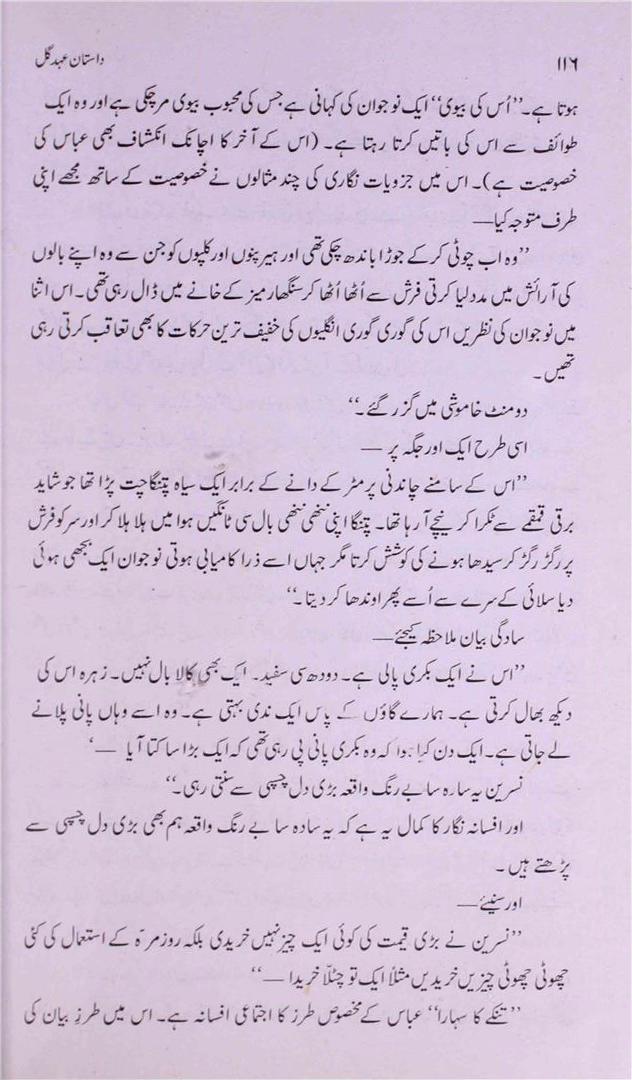 ۱۱۶
داستان عہد گل
ہوتا ہے۔ ”اُس کی بیوی“ ایک نوجوان کی کہانی ہے جس کی محبوب بیوی مر چکی ہے اور وہ ایک
طوائف سے اس کی باتیں کرتا رہتا ہے۔ (اس کے آخر کا اچانک انکشاف بھی عباس کی
خصوصیت ہے)۔ اس میں جزویات نگاری کی چند مثالوں نے خصوصیت کے ساتھ مجھے اپنی
طرف متوجہ کیا—
”وہ اب چوٹی کر کے جوڑا باندھ چکی تھی اور ہیر پنوں اور کلپوں کو جن سے وہ اپنے بالوں
کی آرائش میں مدد لیا کرتی فرش سے اُٹھا اُٹھا کر سنگھار میز کے خانے میں ڈال رہی تھی۔ اس اثنا
میں نوجوان کی نظریں اس کی گوری گوری انگلیوں کی خفیف ترین حرکات کا بھی تعاقب کرتی رہی
تھیں۔
دو منٹ خاموشی میں گزر گئے۔“
اسی طرح ایک اور جگہ پر —
”اس کے سامنے چاندنی پر مٹر کے دانے کے برابر ایک سیاہ پتنگا چت پڑا تھا جو شاید
برقی قمقمے سے ٹکرا کر نیچے آ رہا تھا۔ پتنگا اپنی ننھی ننھی بال سی ٹانگیں ہوا میں ہلا ہلا کر اور سر کو فرش
پر رگڑ رگڑ کر سیدھا ہونے کی کوشش کرتا مگر جہاں اسے ذرا کامیابی ہوتی نوجوان ایک بجھی ہوئی
دیا سلائی کے سرے سے اُسے پھر اوندھا کر دیتا۔“
سادگی بیان ملاحظہ کیجئے—
”اس نے ایک بکری پالی ہے۔ دودھ سی سفید۔ ایک بھی کالا بال نہیں۔ زہرہ اس کی
دیکھ بھال کرتی ہے۔ ہمارے گاؤں کے پاس ایک ندی بہتی ہے۔ وہ اسے وہاں پانی پلانے
لے جاتی ہے۔ ایک دن کیا ہوا کہ وہ بکری پانی پی رہی تھی کہ ایک بڑا سا کتا آیا —‘
نسرین یہ سادہ سا بے رنگ واقعہ بڑی دل چسپی سے سنتی رہی۔“
اور افسانہ نگار کا کمال یہ ہے کہ یہ سادہ سا بے رنگ واقعہ ہم بھی بڑی دل چسپی سے
پڑھتے ہیں۔
اور سنیئے—
”نسرین نے بڑی قیمت کی کوئی ایک چیز نہیں خریدی بلکہ روزمرّہ کے استعمال کی کئی
چھوٹی چھوٹی چیزیں خریدیں مثلاً ایک تو چٹلّا خریدا —“
”تنکے کا سہارا“ عباس کے مخصوص طرز کا اجتماعی افسانہ ہے۔ اس میں طرزِ بیان کی